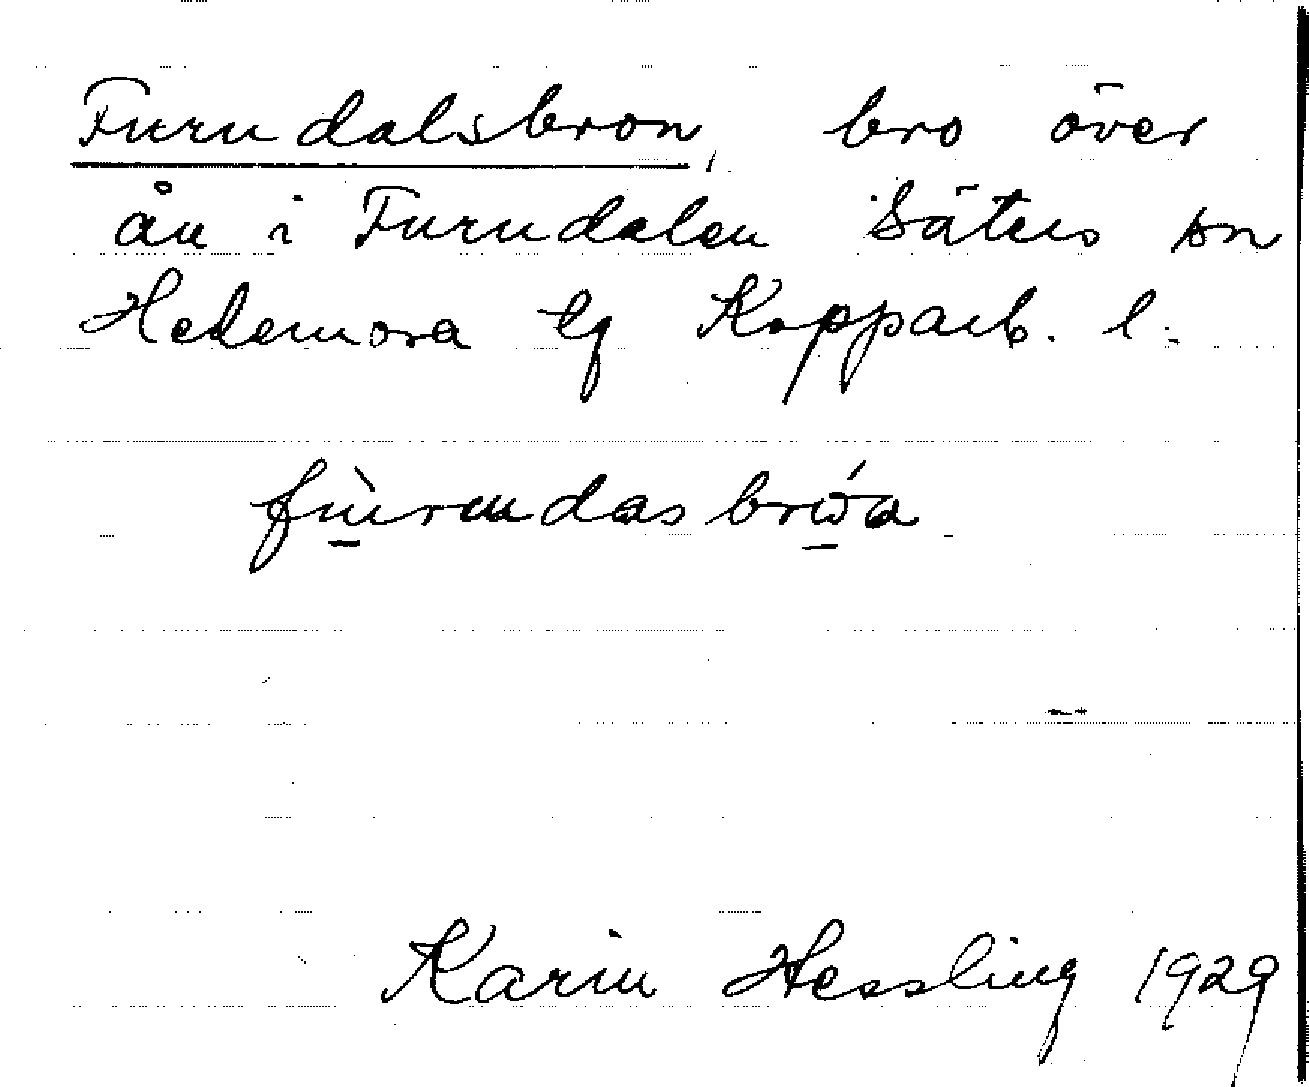 Furudalsbron, bro över
ån i Furudalen Säters sn
Hedemora tg Kopparb. l.
fùrudasbrώa
Karin Hessling 1929